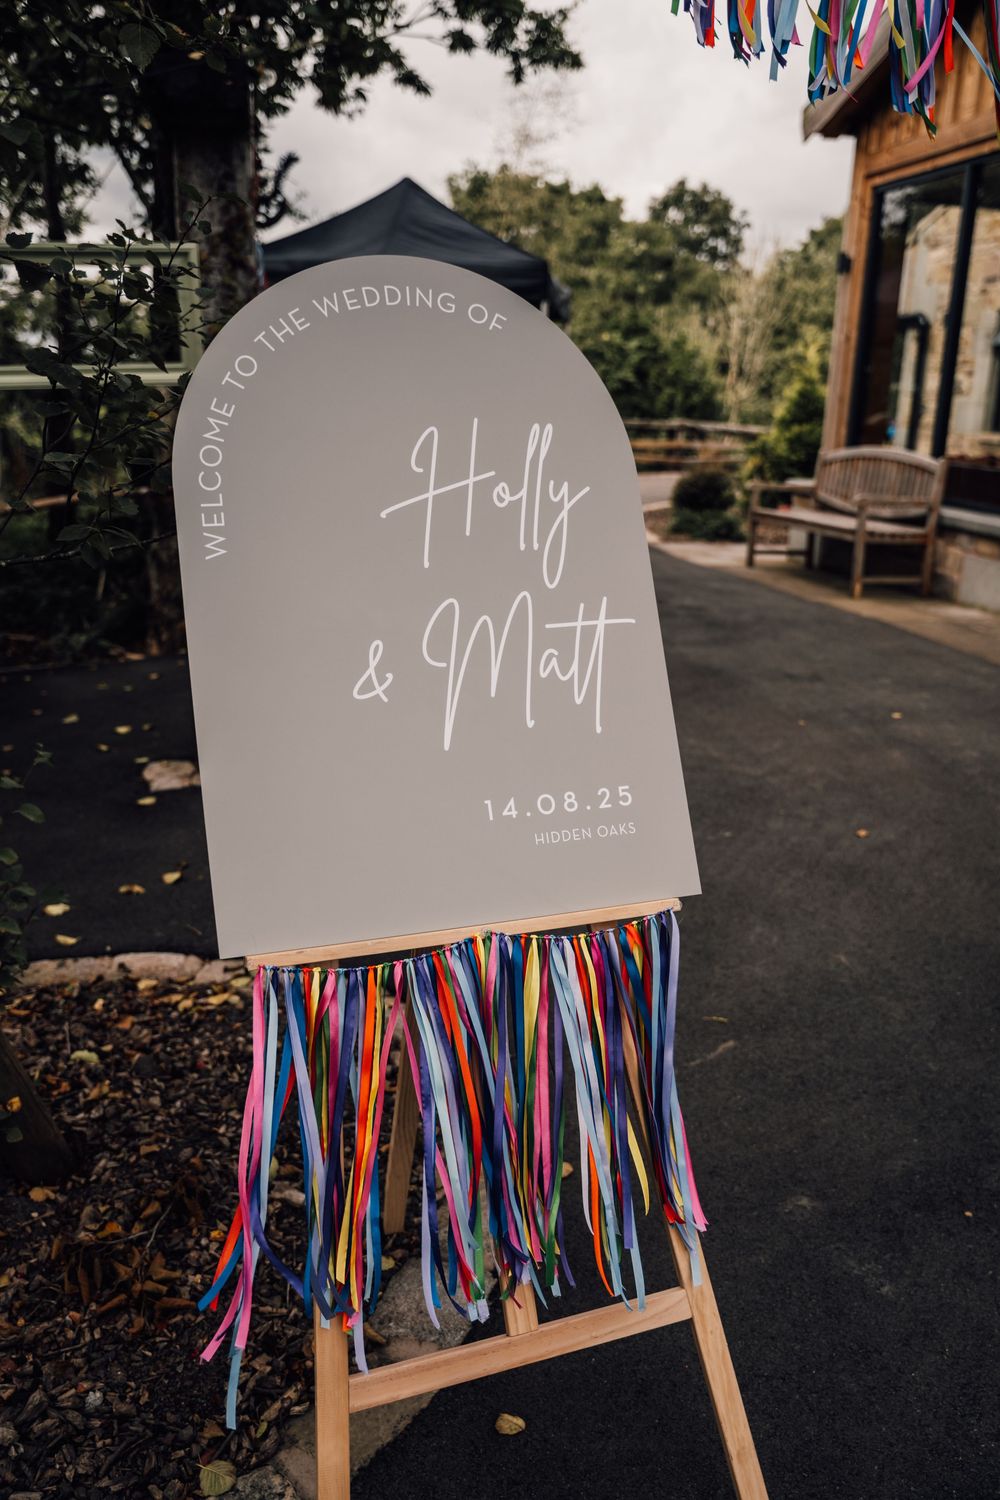 WELCOME TO THE WEDDING OF
Holly
& Matt
14.08.25
HIDDEN OAKS